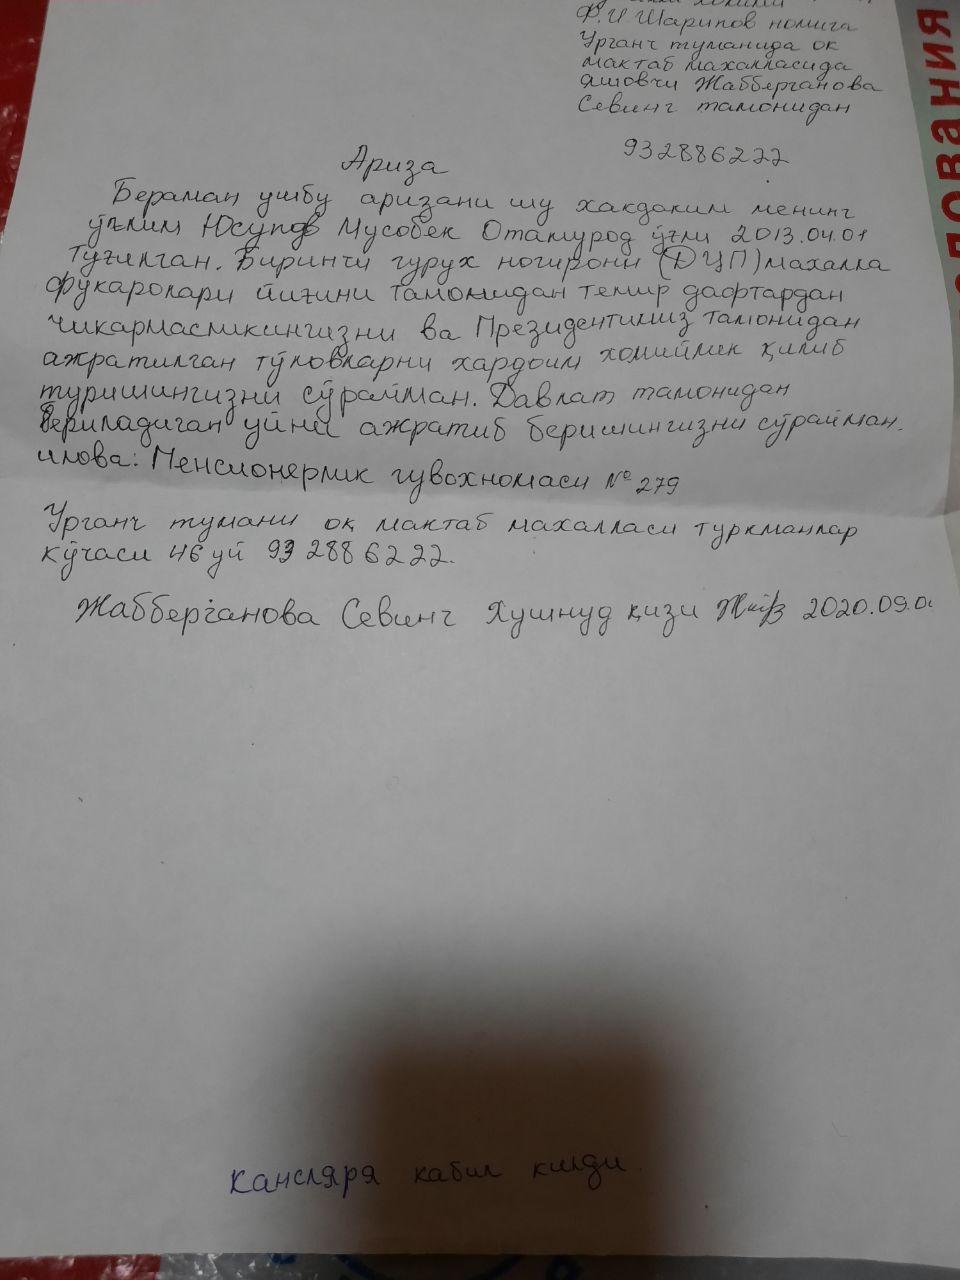 Ф.И Шарипов номига
Урганч туманида ок
мактаб махалласида
яшовчи Жабберганова
Севинг тамонидан
932886222
Ариза
Бераман ушбу аризани шу хакдаким менинг
ўғлим Юсупов Мусобек Отамурод ўғли 2013.04.01
туғилган. Биринчи гурух ногирони (ДЦП) махалла
фукаролари йиғини тамонидан темир дафтардан
чикармасликингизни ва Президентимиз тамонидан
ажратилган тўловларни хардоим хомийлик қилиб
туришингизни сўрайман. Давлат тамонидан
бериладиган уйни ажратиб беришингизни сўрайман.
илова: Пенсионерлик гувохномаси № 279
Урганч тумани оқ мактаб махалласи туркманлар
кўчаси 46 уй 93 288 6222.
Жабберганова Севинг Хушнуд қизи 2020.09.0
Кансляря кабил килди.
ЛОВАНИЯ